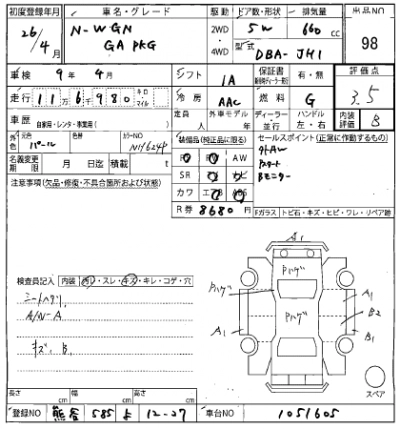 初度登録年月 車名・グレード 駆動 ドア数・形状 排気量 出品NO
26/4月 N-WGN G A PKG 2WD 4WD 5W 660cc 98
型式 DBA-JH1
車検 9年4月 シフト IA 保証書 有・無 評価点
走行 116980 キロ マイル 冷房 AAC 燃料 G 3.5
車歴 自家用・レンタ・事業用( ) 定員 人 外車モデル 年 ディーラー 並行 ハンドル 左・右 内装評価 B
外色 元色 パール 色替 カラーNO NH624P 装備品(純正品に限る) セールスポイント(正常に作動するもの)
名義変更期限 月 日迄 積載 t AW 社外AW
SR Pスタート
注意事項(欠品・修復・不具合箇所および状態) カワ Bモニター
R券 8680円
Fガラス トビ石・キズ・ヒビ・ワレ・リペア跡
A1
Pハゲ Pハゲ
検査員記入 内装 ・スレ・キズ・キレ・コゲ・穴 A1
シートヘタリ Pハゲ B2
A/N-A A1 B1
キズ、B
スペア
長さ cm 幅 cm 高さ cm
登録NO 熊谷 585 よ 12-27 車台NO 1051605